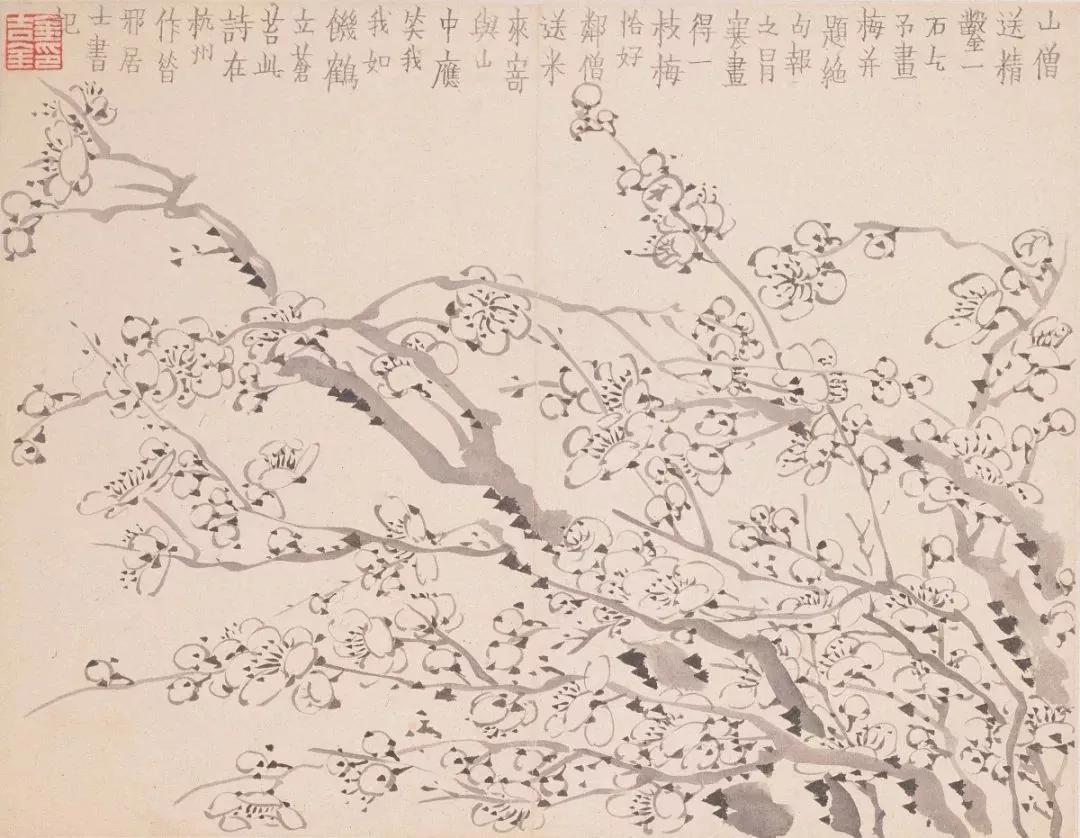 山僧
送精
鑿一
石乞
予畫
梅并
題絶
句報
之冒
寒畫
得一
枝梅
恰好
鄰僧
送米
來寄
與山
中應
笑我
我如
饑鶴
立蒼
苔此
詩在
杭州
作昔
邪居
士書
記